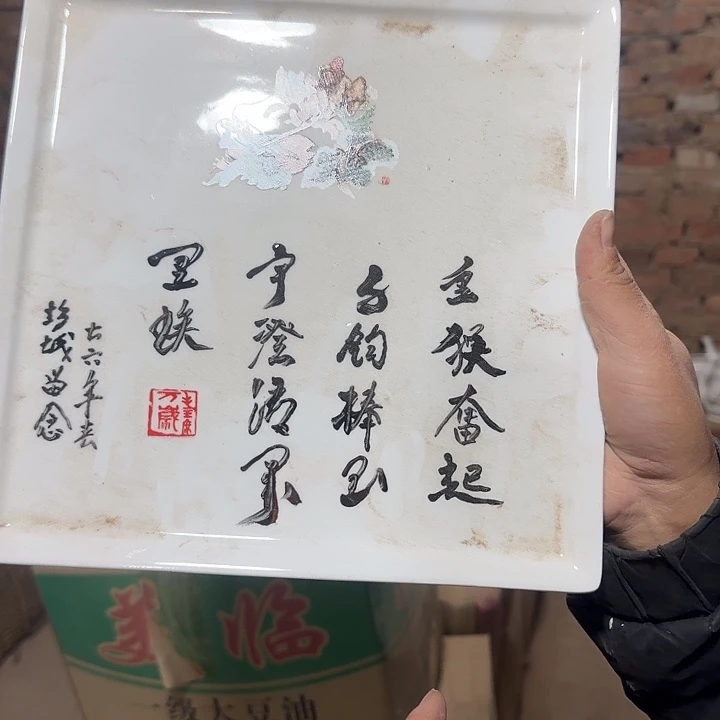 金猴奋起
千钧棒玉
宇澄清万
里埃
毛主席
万歲
七六年春
彭城留念
美临
一级大豆油